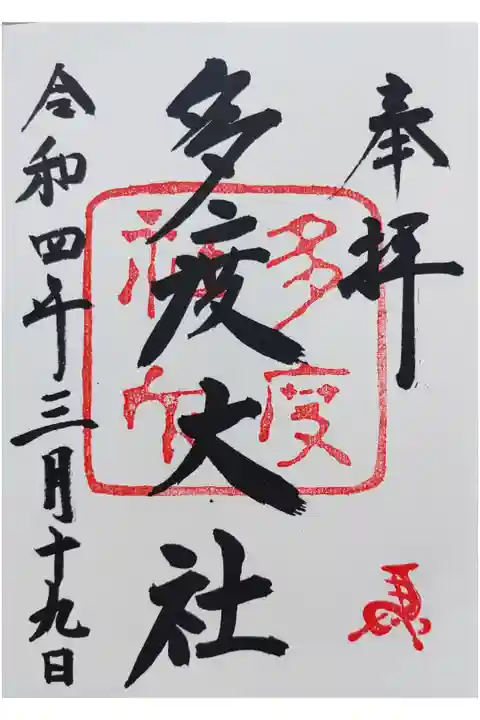 奉拝
多度大社
令和四年三月十九日
多度